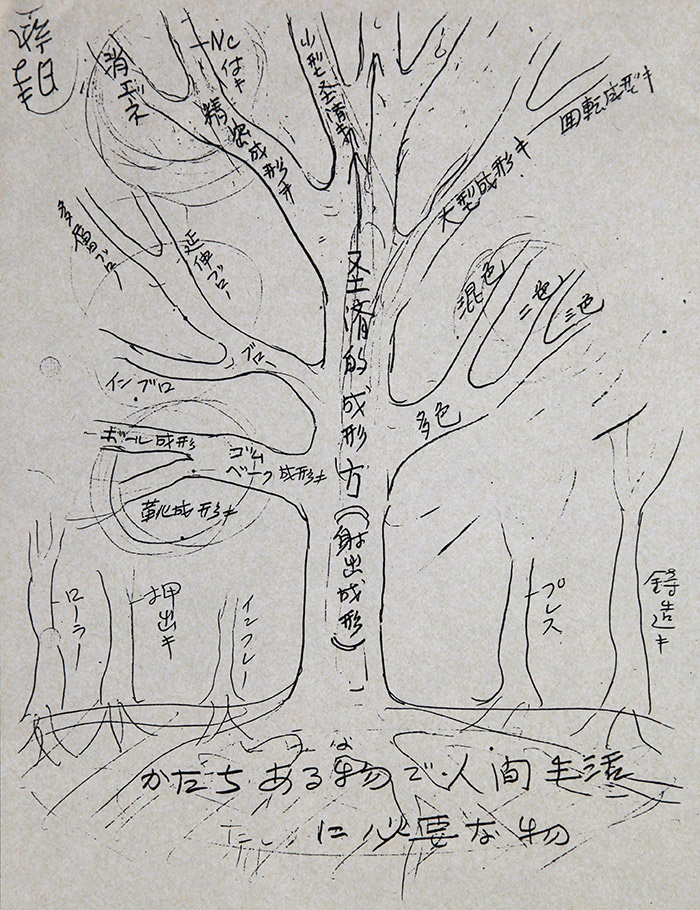 消エネ
NC付キ
精密成形キ
小型経済キ
大型成形キ
回転成形キ
多層ブロー
延伸ブロー
ブロー
インブロ
混色
二色
三色
多色
ボール成形
ゴム
ベーク成形キ
靴成形キ
経済的成形方
(射出成形)
ローラー
押出キ
インフレー
プレス
鋳造キ
かたちある物で人間生活
に必要な物